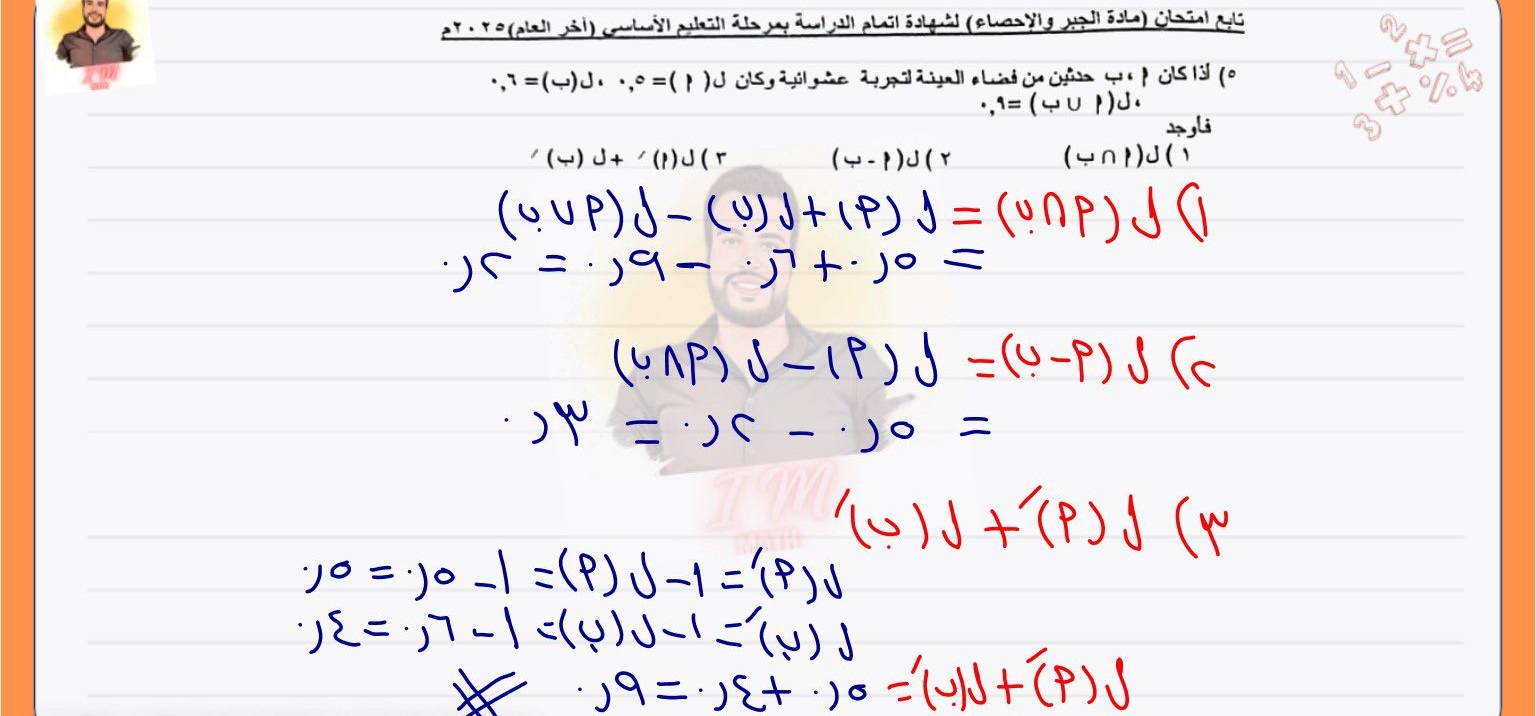 تابع امتحان (مادة الجبر والإحصاء) لشهادة اتمام الدراسة بمرحلة التعليم الأساسى (أخر العام) ٢٠٢٥م
٥) أذا كان م ، ب حدثين من فضاء العينة لتجربة عشوائية وكان ل( م ) = ٠,٥ ، ل(ب) = ٠,٦
، ل(م ∪ ب) = ٠,٩
فأوجد
١) ل(م ∩ ب) ٢) ل(م - ب) ٣) ل(م)′ + ل (ب)′
١) ل (م ∩ ب) = ل (م) + ل(ب) - ل(م ∪ ب)
= ٠,٥ + ٠,٦ - ٠,٩ = ٠,٢
٢) ل (م - ب) = ل (م) - ل (م ∩ ب)
= ٠,٥ - ٠,٢ = ٠,٣
٣) ل (م)′ + ل (ب)′
ل(م)′ = ١ - ل (م) = ١ - ٠,٥ = ٠,٥
ل (ب)′ = ١ - ل (ب) = ١ - ٠,٦ = ٠,٤
ل (م)′ + ل(ب)′ = ٠,٥ + ٠,٤ = ٠,٩
1 - 2 + = 3 + % 4
IM
IM
MATH